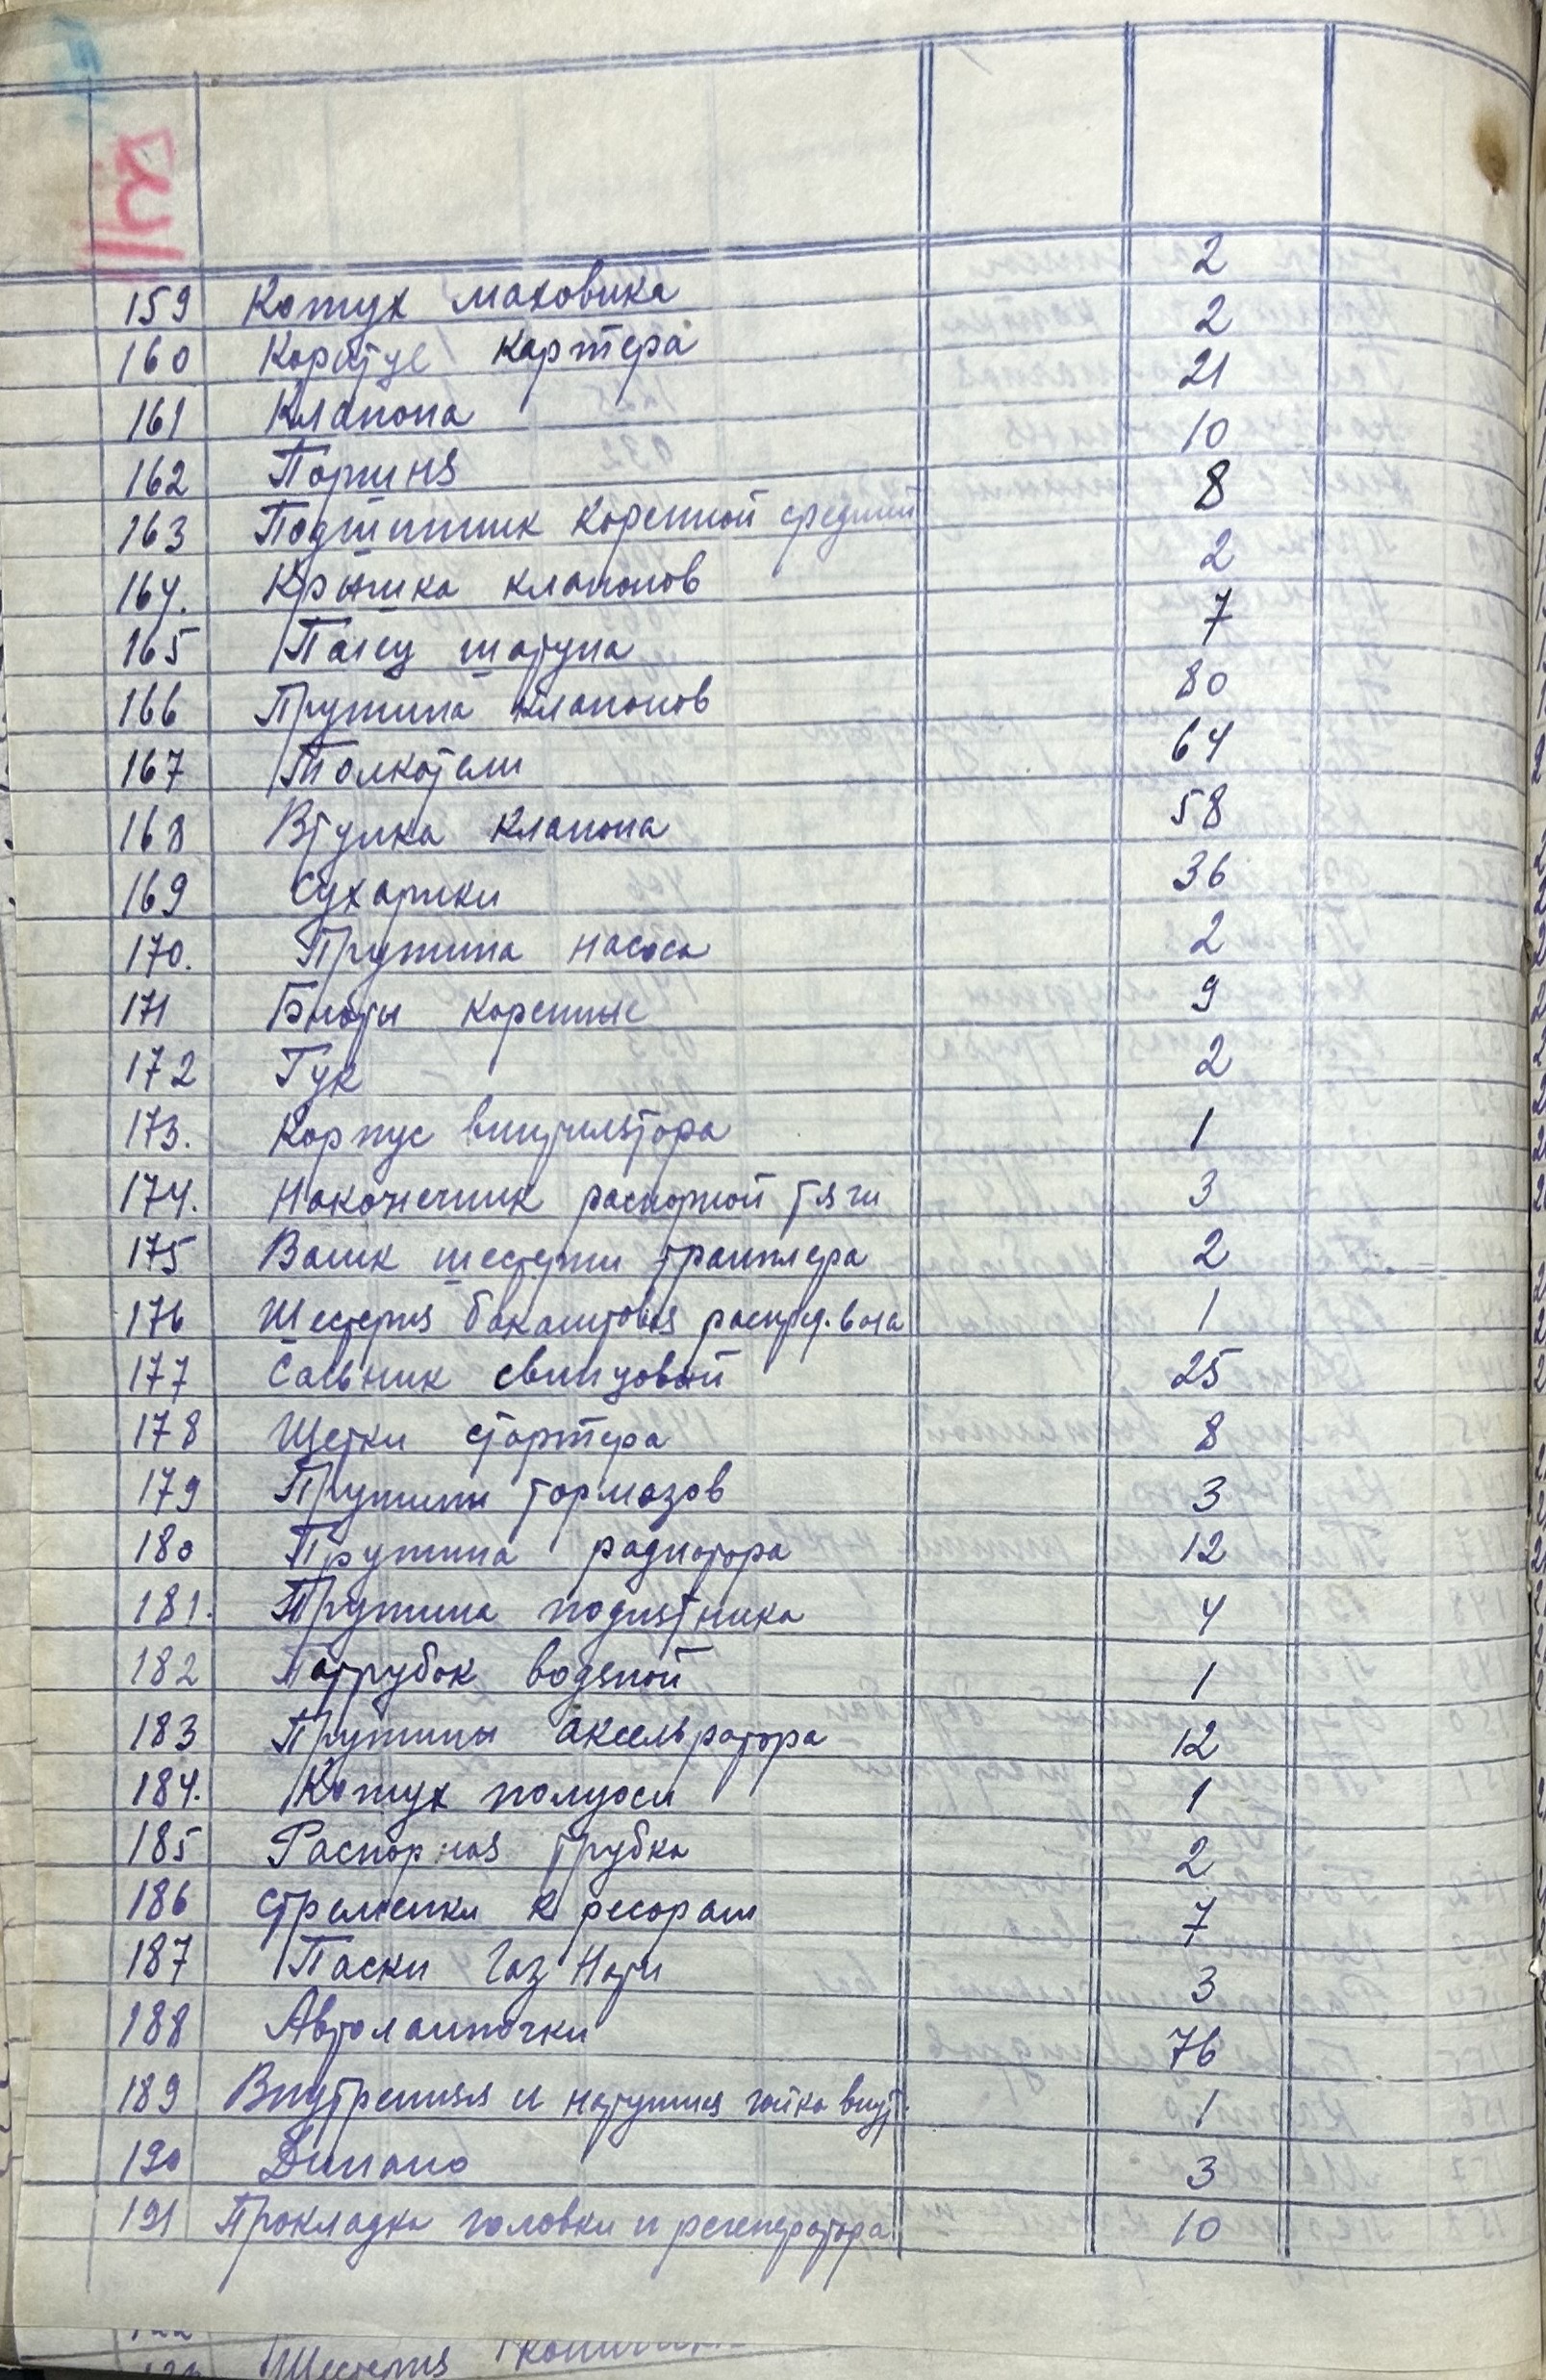 159 Кожух маховика 2
160 Корпус картера 2
161 Клапана 21
162 Поршня 10
163 Подшипник коренной средний 8
164. Крышка клапанов 2
165 Палец шатуна 7
166 Пружина клапанов 80
167 Толкатели 64
168 Втулка клапана 58
169 Сухарики 36
170. Пружина насоса 2
171 Болты коренные 9
172 Гук 2
173. Корпус винтилятора 1
174. Наконечник распорной тяги 3
175 Валик шестерни трамплера 2
176 Шестерня бакалитовая распред. вала 1
177 Сальник свинцовый 25
178 Щетки стартера 8
179 Пружины тормазов 3
180 Пружина радиатора 12
181. Пружина подпятника 4
182 Патрубок водяной 1
183 Пружины аксельратора 12
184. Кожух полуоси 1
185 Распорная трубка 2
186 Стремянки к ресорам 7
187 Паски Газ Нати 3
188 Автолампочки 76
189 Внутреняя и наружняя гайка внут. 1
190 Динамо 3
191 Прокладка головки и регенератора 10
122
Шестерня